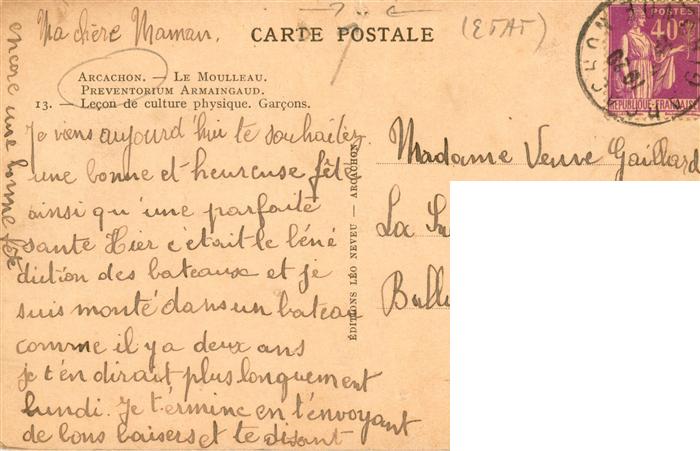 Ma chère Maman,
CARTE POSTALE
(ETAT)
POSTES
40c
RÉPUBLIQUE FRANÇAISE
ARCACHON. — LE MOULLEAU.
PREVENTORIUM ARMAINGAUD.
13. — Leçon de culture physique. Garçons.
Je viens aujourd'hui te souhaitez
une bonne et heureuse fête
ainsi qu'une parfaite
santé Hier c'était le béné
diction des bateaux et je
suis monté dans un bateau
comme il y a deux ans
je t'en dirait plus longuement
lundi. Je termine en t'envoyant
de bons baisers et te disant
encore une bonne fête
ÉDITIONS LÉO NEVEU — ARCACHON
Madame Veuve Gaillard
La